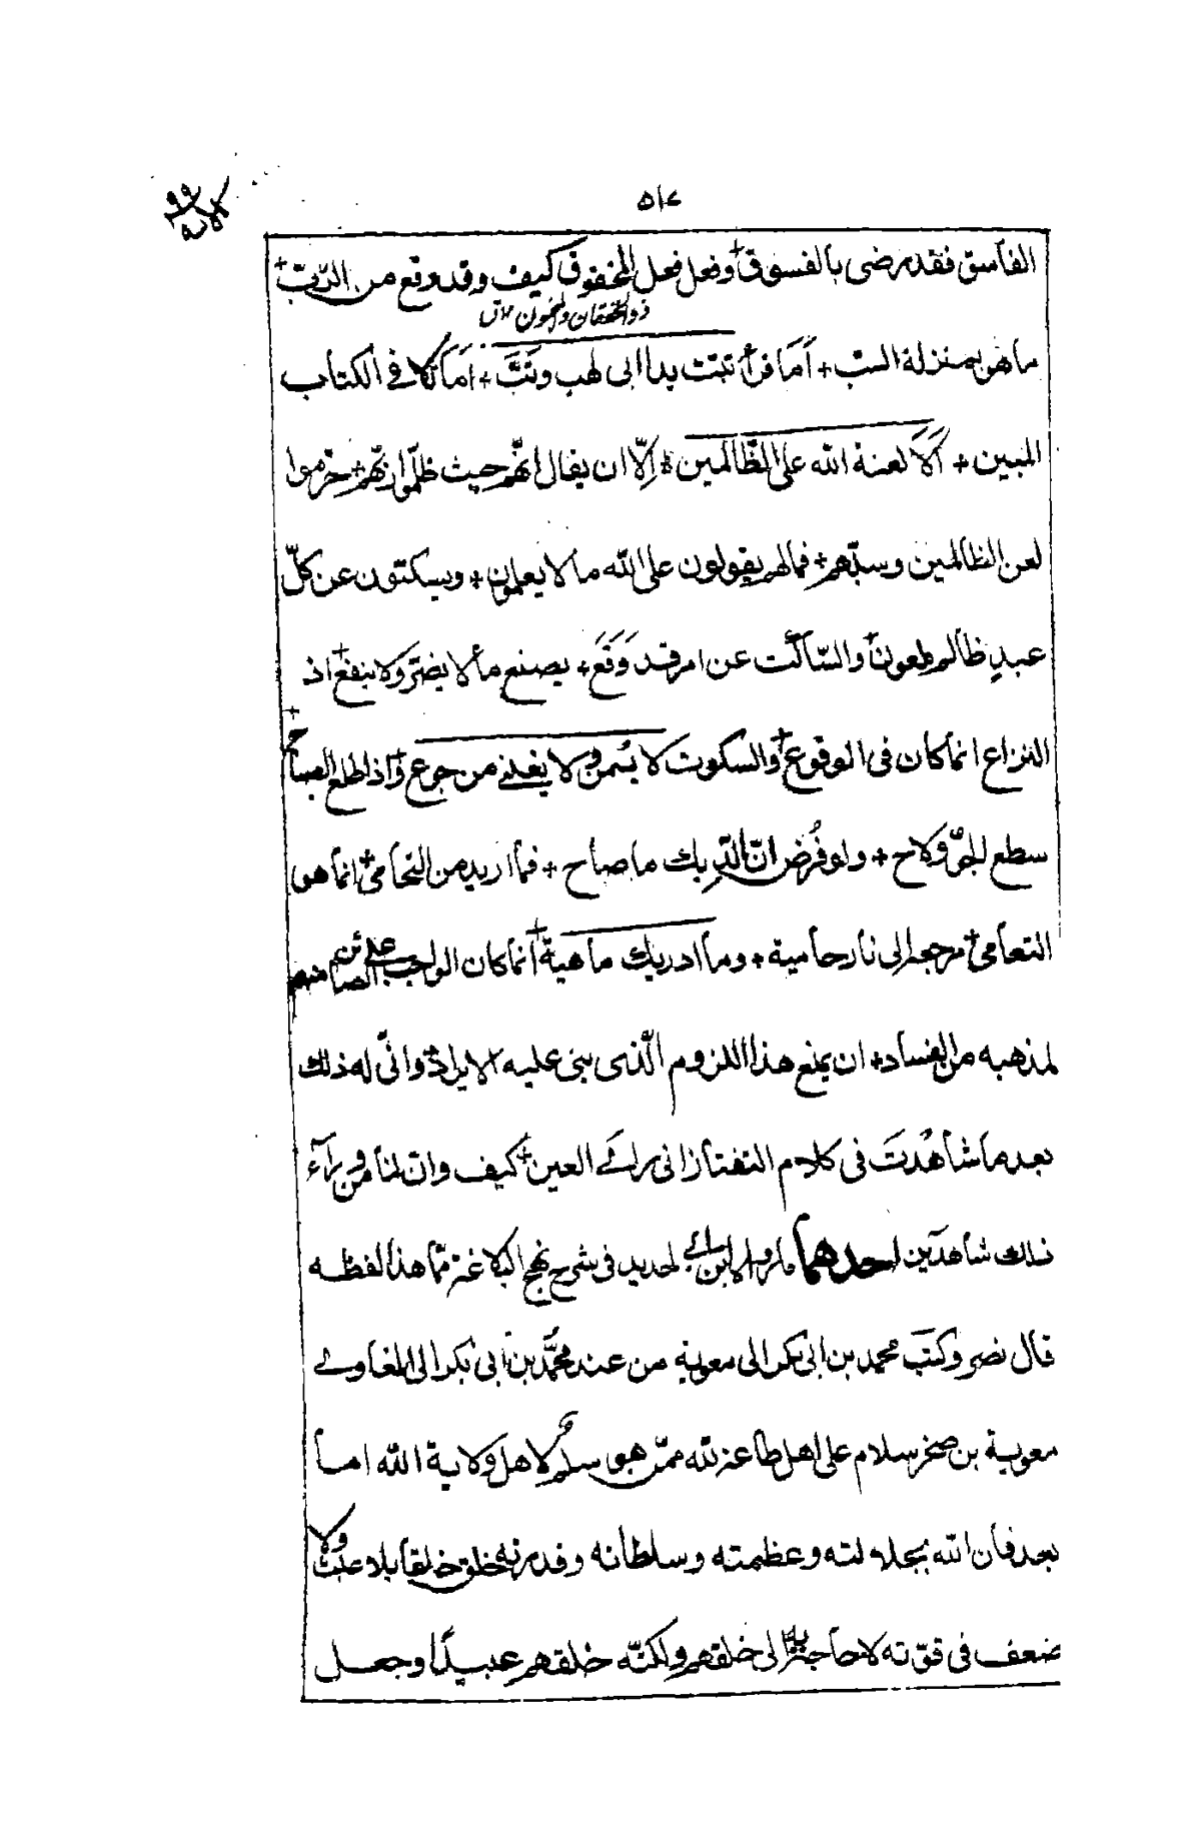 ٥١٤
الفاسق فقد رضى بالفسوق + وفعل فعل المخفوق كيف وقد وقع من الربّ +
ذو الخفقان والمجنون
ما هو بمنزلة السبّ + أَمَا قرأ تبّت يدا ابى لهب وتَبَّ + أَمَا تلا فى الكتاب
المبين + أَلَا لعنة الله على الظّالمين + إلّا ان يقال انّهم حيث ظلموا ربّهم + حرّموا
لعن الظالمين وسبّهم + فما لهم يقولون على الله ما لا يعلمون + ويسكتون عن كلّ
عبدٍ ظالم ملعون + والسّاكت عن امر قد وَقَعَ + يصنع ما لا يضرّ ولا ينفع + اذ
النزاع انما كان فى الوقوع + والسكوت لا يُسمن ولا يغنى من جوع + واذا طلع الصباح +
سطع الجوّ ولاح + ولو فُرض انّ الدّيك ما صاح + فما اريد من التحامى + انما هو
التعامى + مرجعه الى نار حامية + وما ادريك ما هية + انما كان الواجب على الصائن منهم
لمذهبه من الفساد + ان يمنع هذا اللزوم الّذى بنى عليه الايراد + وانّى له ذلك
بعد ما شاهدتَ فى كلام التفتازانى رأى العين + كيف وان لنا من وراء
ذلك شاهدَين احدهما ما رواه ابن ابى الحديد فى شرح نهج البلاغة ممّا هذا لفظه
قال نصر وكتب محمد بن ابى بكر الى معوية من عند محمّد بن ابى بكر الى الغاوى
معوية بن صخر سلام على اهل طاعة لله ممّن هو سلم لاهل ولاية الله اما
بعد فان الله بجلالته وعظمته وسلطانه وقدرته خلق خلقا بلا عبث ولا
ضعف فى قوّته لا حاجة به الى خلقهم ولكنّه خلقهم عبيدًا وجعل